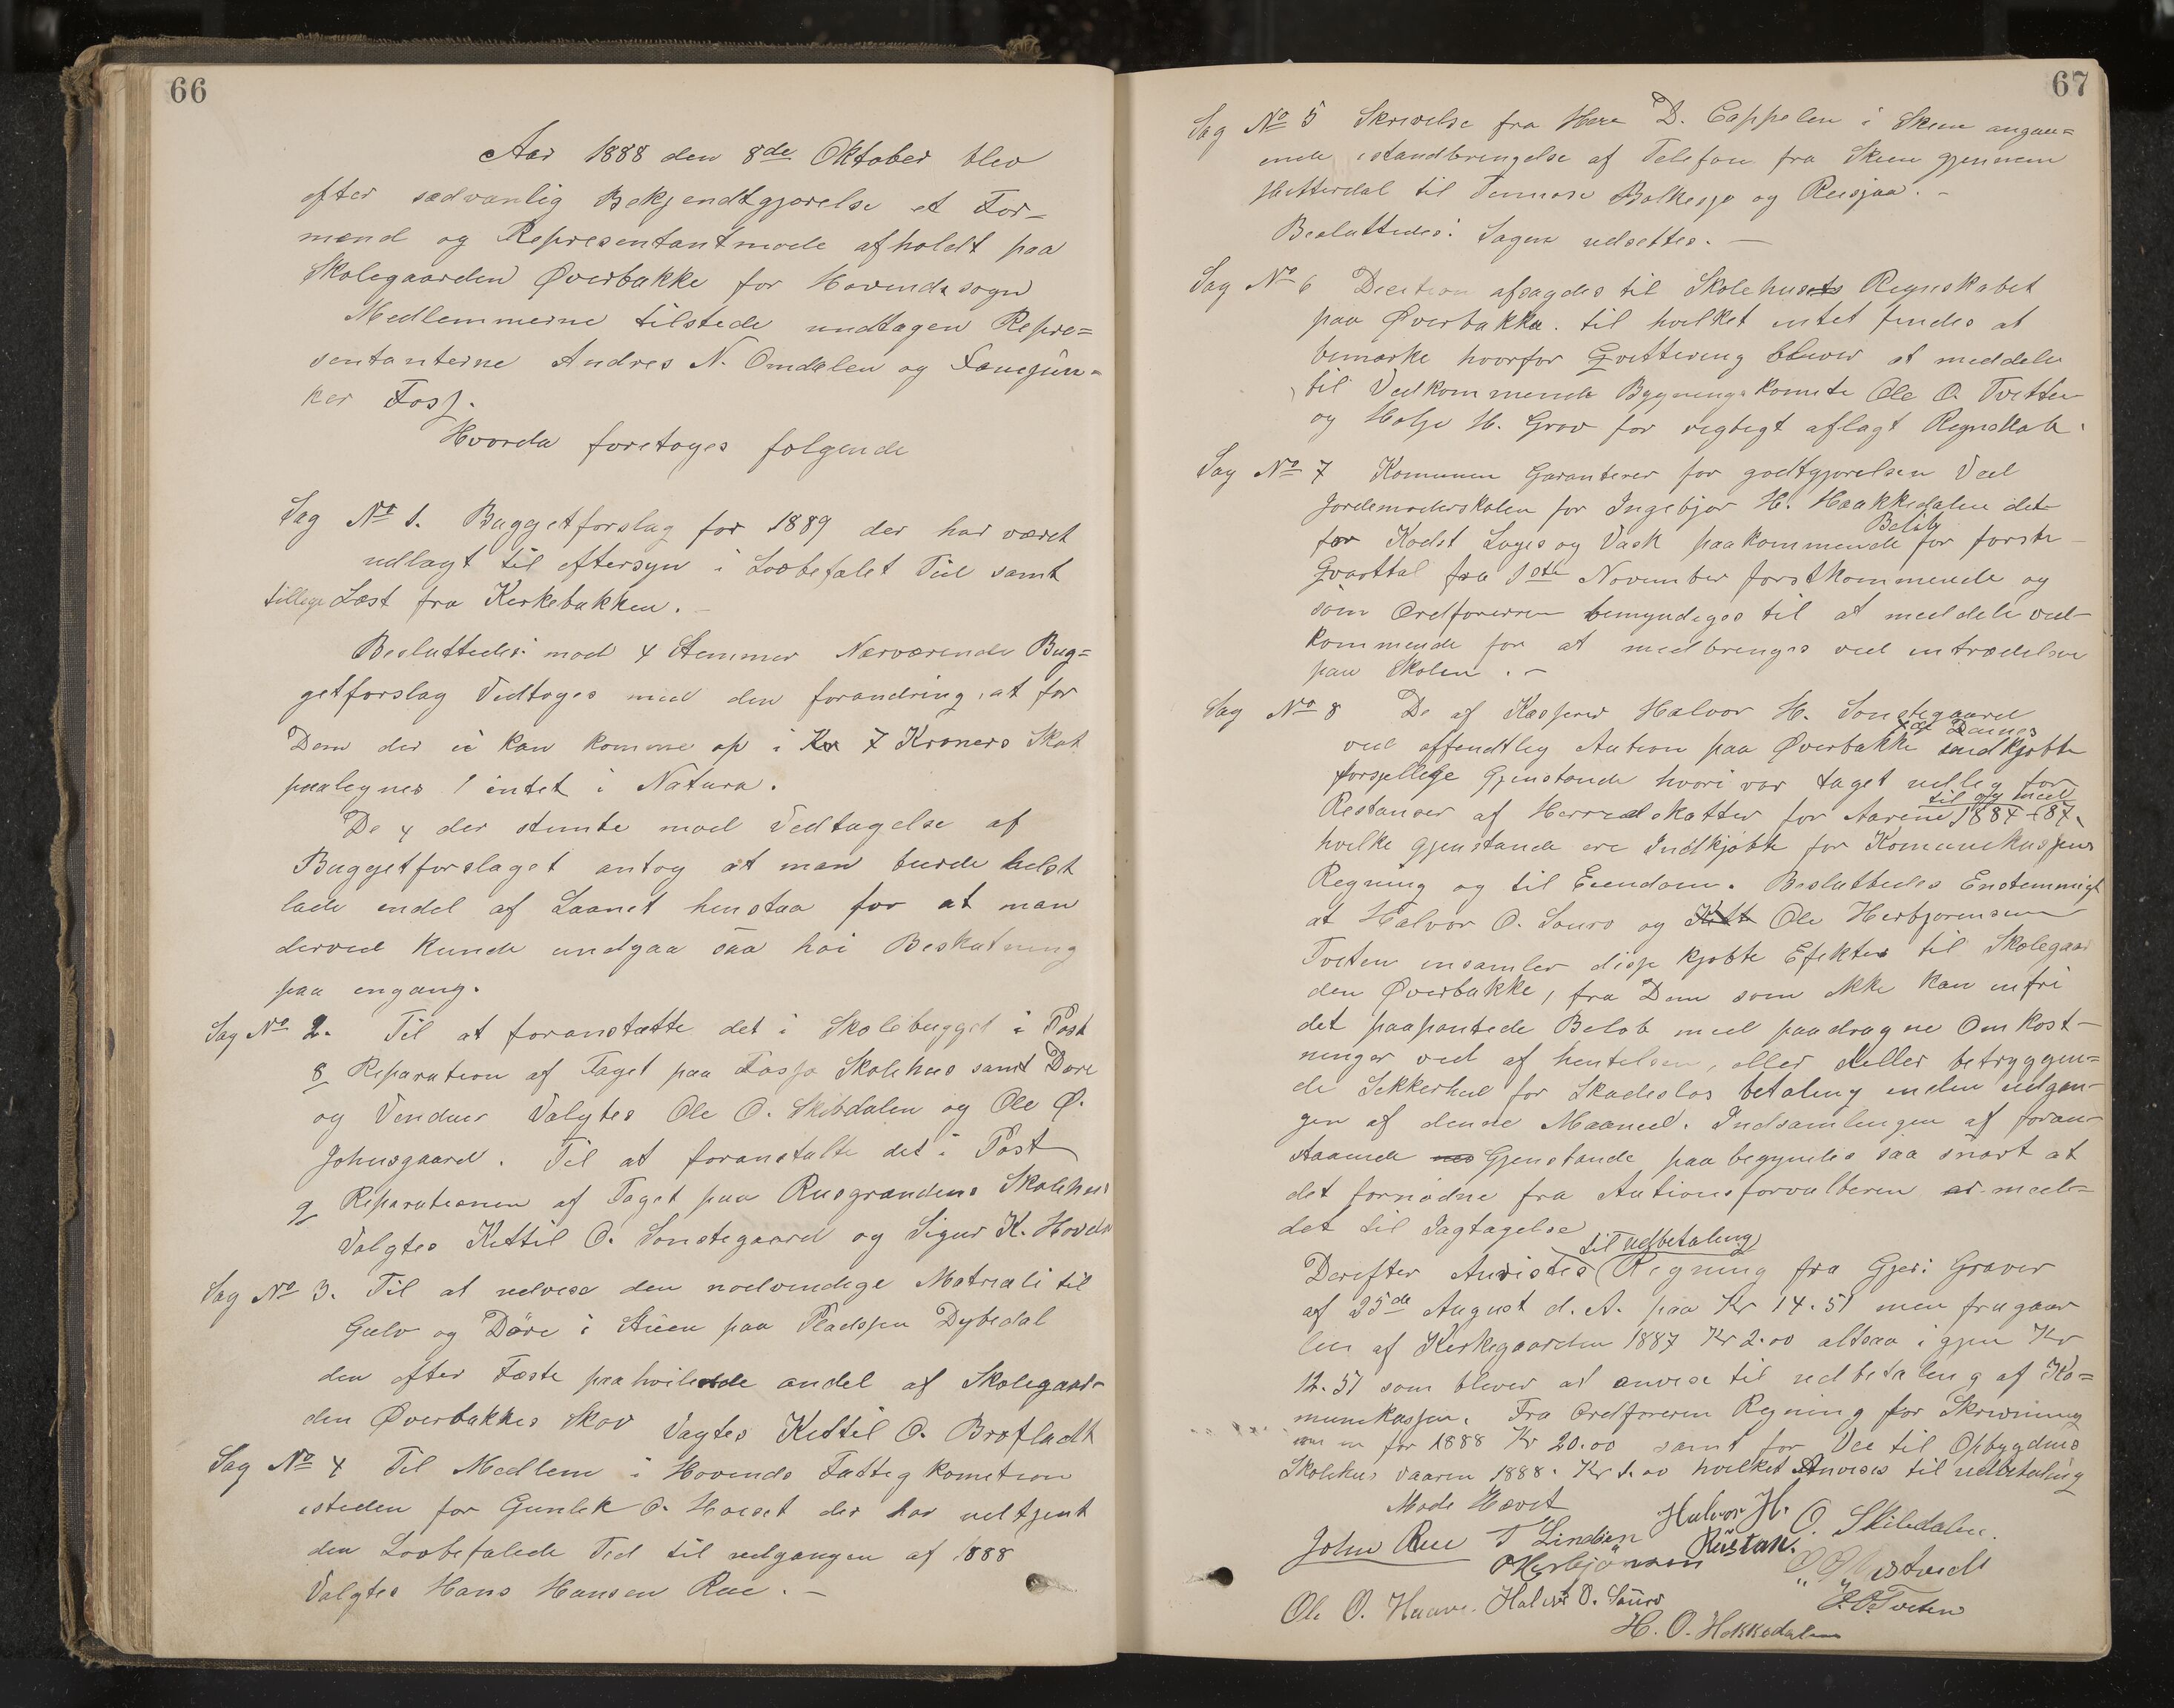 66
Aar 1888 den 8de Oktober blev
efter sædvanlig Bekjendtgjørelse et For=
mænd og Representantmøde afholdt paa
Skolegaarden Øverbakke for Hovindsogn
Medlemmerne tilstede undtagen Repre=
sentanterne Andres N. Omdalen og
ker Foss.
Hvorda foretoges følgende
Sag No 1. Buggetforslag for 1889 der har været
udlagt til eftersyn i Lovbefalet Tid samt
tillige Læst fra Kirkebakken. –
Besluttedes: mod 4 Stemmer Nærværende Bug=
getforslag Vedtoges med den forandring, at for
Dem der ei kan komme op i Kr 7 Kroners Skat
paalegnes intet i Natura.
De 4 der stemte mod Vedtagelse af
Buggetforslaget antog at man burde helst
lade endel af Laanet henstaa for at man
derved kunde undgaa saa høi Beskatning
paa engang.
Sag No 2. Til at foranstætte det i Skolebugget i Post
8 Reparation af Taget paa Fossø Skolehus samt Döre
og Venduer Valgtes Ole O. Skibdalen og Ole Ø.
Johnsgaard. Til at foranstalte det i Post
9 Reparationen af Taget paa Rusgrændens Skolehus
Valgtes Kittil O. Sønstegaard og Sigur K. Hovde
Sag No 3. Til at udvise den nødvendige Matriali til
Gulv og Döre i Stuen paa Pladssen Dybedal
den efter Fæste paahvilende andel af Skolegaar-
den Øverbakkes Skov Vagtes Kittil O. Brøfladt
Sag No 4 Til Medlem i Hovinds Fattigkomition
isteden for Gunlek O. Haaset der har udtjent
den Lovbefalede Tid til udgangen af 1888
Valgtes Hans Hansen Rue. –
67
Sag No 5 Skrivelse fra Herr D. Cappelen i Skien angaa=
ende istandbringelse af Telefon fra Skien gjennem
Hitterdal til Tinnoset Bolkesjø og Reisjaa. –
Besluttedes: Sagen udsettes. –
Sag No 6 Decition afsagdes til Skolehusets Regnskabet
paa Øverbakke. til hvilket intet findes at
bemærke hvorfor Qvittering bliver at meddele
til Vedkommende Bygningskomite Ole O. Tveiten
og Helge H. Grov for rigtigt aflagt Regnskab.
Sag No 7 Komunen Garanterer for godtgjørelsen Ved
Jordemoderskolen for Ingebjør H. Haakkedalen det
Beløb
for Kadst Loges og Vask paakommende for første
Qvarttal fra 1ste November førstkommende og
som Ordføreren bemyndiges til at meddele ved-
kommende for at medbringes ved intrædelsen
paa Skolen. –
Sag No 8 De af Kasserer Halvor H. Sønstegaard
ved offendtlig Aution paa Øverbakke indkjøbte
forsjellige Gjenstande hvori var taget udlæg for
til og med
Restanser af Herredskatter for Aarene 1884–87.
hvilke gjenstande ere Indkjøbt for Komunekassens
Regning og til Eiendom. Besluttedes Enstemmigt
at Halvor O. Sauro og Kitt Ole Herbjørensen
Tveten insamler disse kjøbte Efekter til Skolegaar
den Øverbakke, fra Dem som ikke kan infri
det paapantede Beløb med paadragne Omkost-
ninger ved af hentelsen, eller stiller betryggen=
de Sikkerhed for Skadesløs betaling inden udgan-
gen af denne Maaned. Indsamlingen af foran-
staaende Gjenstande paa begyndes saa snart at
det fornødne fra Autionsforvalteren er med=
det til Iagtagelse
til udbetaling
Derefter Anvistes Regning fra Gjer: Graver
af 25de August d. A. paa Kr 14.51 men fragaar
len af Kirkegaarden 1887 Kr 2.00 altsaa igjen Kr
12.51 som bliver at anvise til udbetaling af Ko=
munekassen. Fra Ordføreren Regning for Skrivning
for 1888 Kr 20.00 samt for Ved til Opbygdens
Skolehus vaaren 1888. Kr 1.00 hvilket Anvises til udbetaling
Møde Hævet
John Rue T Lindsen Halvor H. Rustan. O. Skibdalen.
OHerbjørnsen
Ole O. Haave. Halvor O. Sauro O.O. Tveten
H. O. Hakkedalen